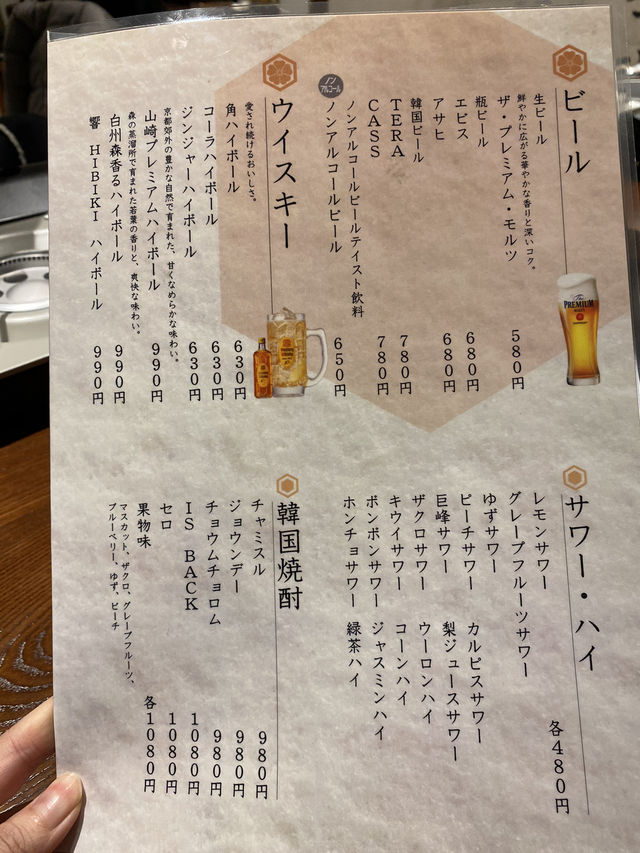 ビール
生ビール
鮮やかに広がる華やかな香りと深いコク。
ザ・プレミアム・モルツ 580円
瓶ビール
エビス 680円
アサヒ 680円
韓国ビール
TERA 780円
CASS 780円
ノンアルコール
ノンアルコールビールテイスト飲料
ノンアルコールビール 650円
The
PREMIUM
MALT'S
ウイスキー
愛され続けるおいしさ。
角ハイボール 630円
コーラハイボール 630円
ジンジャーハイボール 630円
京都郊外の豊かな自然で育まれた、甘くなめらかな味わい。
山崎プレミアムハイボール 990円
森の蒸溜所で育まれた若葉の香りと、爽快な味わい。
白州森香るハイボール 990円
響 HIBIKI ハイボール 990円
サワー・ハイ
各480円
レモンサワー
グレープフルーツサワー
ゆずサワー
ピーチサワー
巨峰サワー
ザクロサワー
キウイサワー
ボンボンサワー
ホンチョサワー
カルピスサワー
梨ジュースサワー
ウーロンハイ
コーンハイ
ジャスミンハイ
緑茶ハイ
韓国焼酎
チャミスル 980円
ジョウンデー 980円
チョウムチョロム 980円
IS BACK 1080円
セロ 1080円
果物味 各1080円
マスカット、ザクロ、グレープフルーツ、
ブルーベリー、ゆず、ピーチ